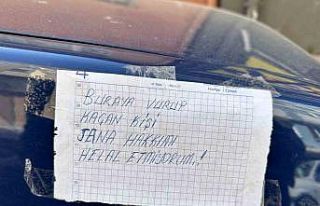 BURAYA VURUP
KAÇAN KİŞİ
SANA HAKKIMI
HELAL ETMİYORUM.!